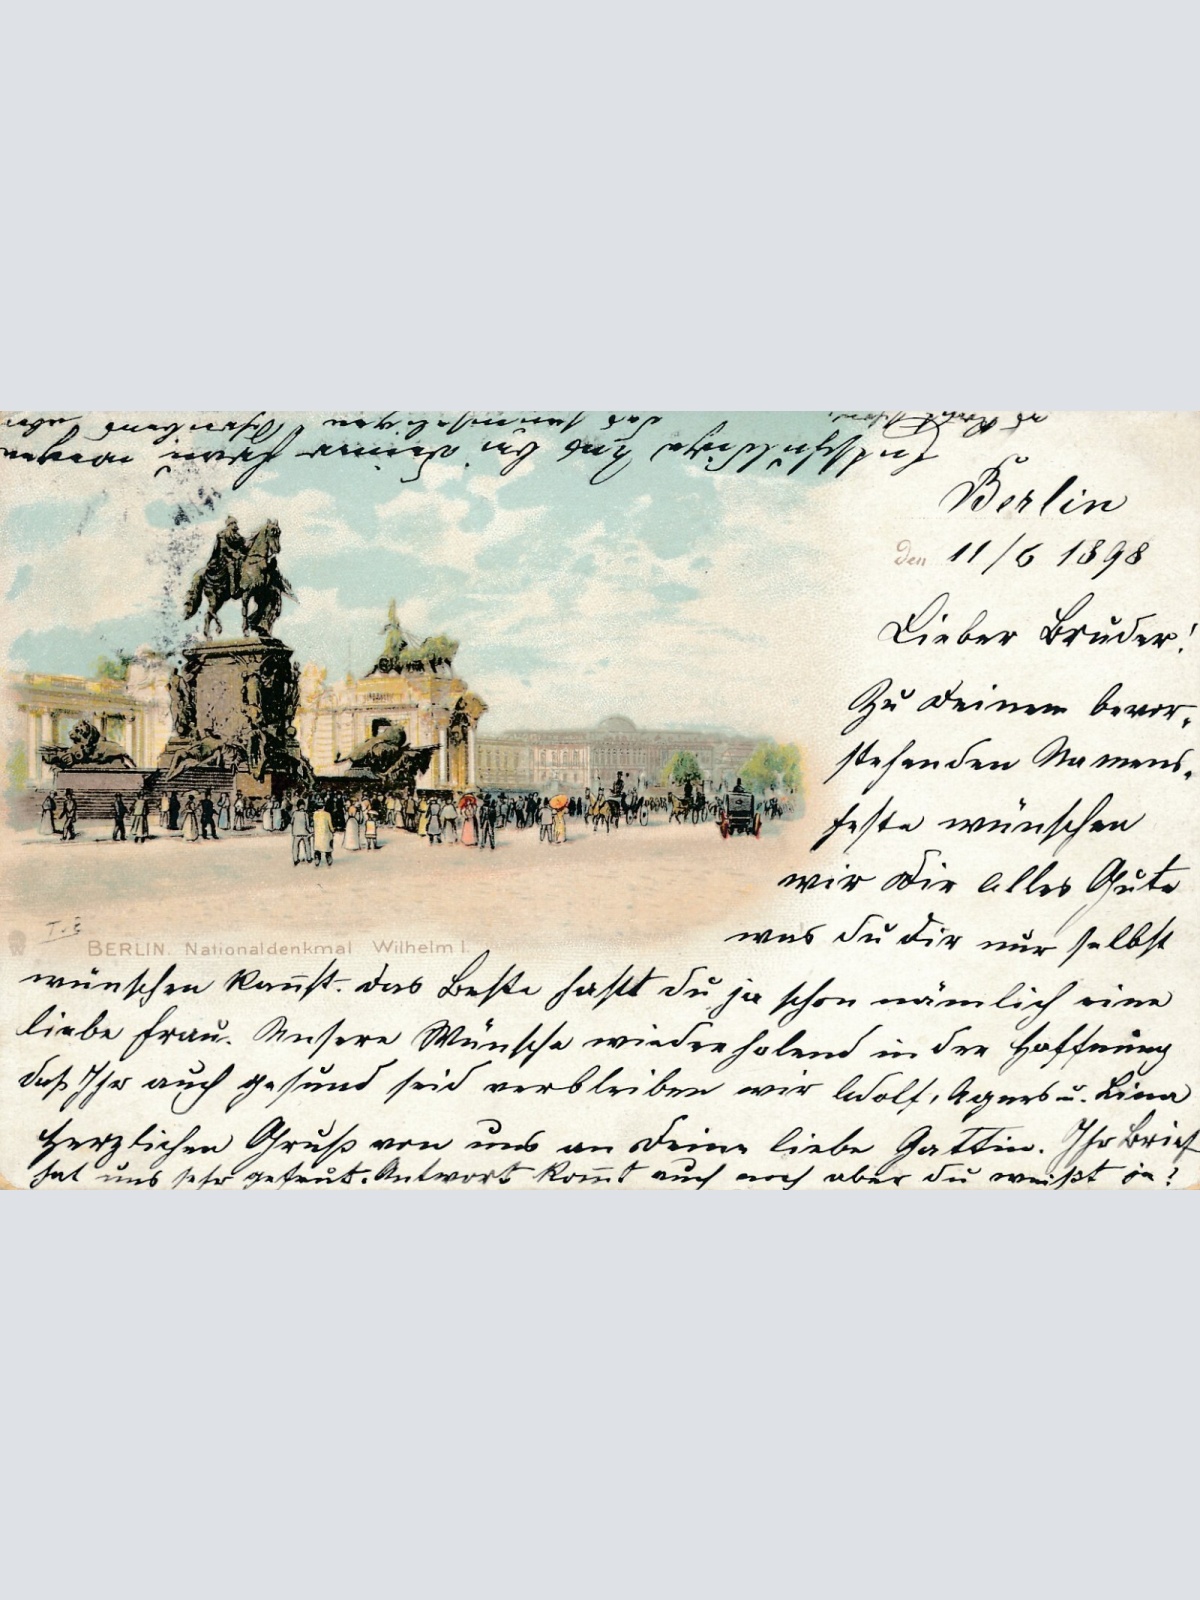 Berlin
den 11/6 1898
Lieber Bruder!
Zu Deinem bevor-
stehenden Namens-
feste wünschen
wir Dir alles Gute
was du dir nur selbst
wünschen kannst. das Beste hast du ja schon nämlich eine
liebe Frau. Unsere Wünsche wiederholend in der Hoffnung
daß Ihr auch gesund seid verbleiben wir Adolf, Agnes u. Lina
Herzlichen Gruß von uns an Deine liebe Gattin. Ihr Brief
hat uns sehr gefreut. Antwort kom̄t auch noch aber du weißt ja?
Entschuldige uns bei Deiner Frau wegen
das
T.E
BERLIN. Nationaldenkmal Wilhelm I.